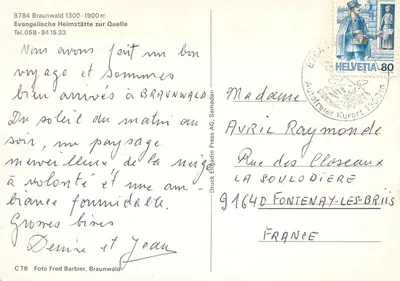 8784 Braunwald 1300-1900 m.
Evangelische Heimstätte zur Quelle
Tel. 058 - 84 15 33
Nous avons fait un bon
voyage et sommes
bien arrivés à BRAUNWALD
Du soleil du matin au
soir, un paysage
merveilleux de la neige
à volonté et une am-
biance formidable.
Grosses bises
Denise et Jean
C 76 Foto Fred Barbier, Braunwald
Druck Engadin Press AG, Samedan
HELVETIA 80
Autofreier Kurort
Madame
AVRIL Raymonde
Rue des Closeaux
LA SOULODIERE
91640 FONTENAY-LES-BRIIS
FRANCE